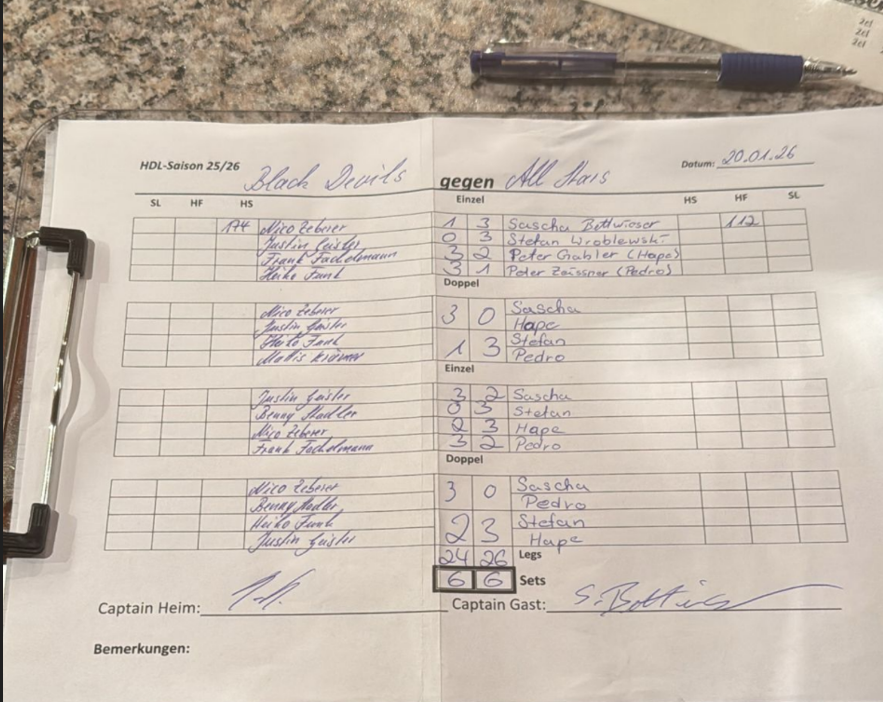 2cl
2cl
2cl
HDL-Saison 25/26 Black Devils gegen All Stars Datum: 20.01.26
SL HF HS Einzel HS HF SL
174 Nico Zeberer 1 3 Sascha Bottwieser 112
Justin Geisler 0 3 Stefan Wroblewski
Frank Fachelmann 3 2 Peter Gabler (Hape)
Heiko Funk 3 1 Peter Zeissner (Pedro)
Doppel
Nico Zeberer 3 0 Sascha
Justin Geisler Hape
Heiko Funk 1 3 Stefan
Mattis Krämer Pedro
Einzel
Justin Geisler 3 2 Sascha
Benny Stadler 0 3 Stefan
Nico Zeberer 2 3 Hape
Frank Fachelmann 3 2 Pedro
Doppel
Nico Zeberer 3 0 Sascha
Benny Stadler Pedro
Heiko Funk 2 3 Stefan
Justin Geisler Hape
24 26 Legs
6 6 Sets
Captain Heim: Captain Gast: S. Bottwieser
Bemerkungen: